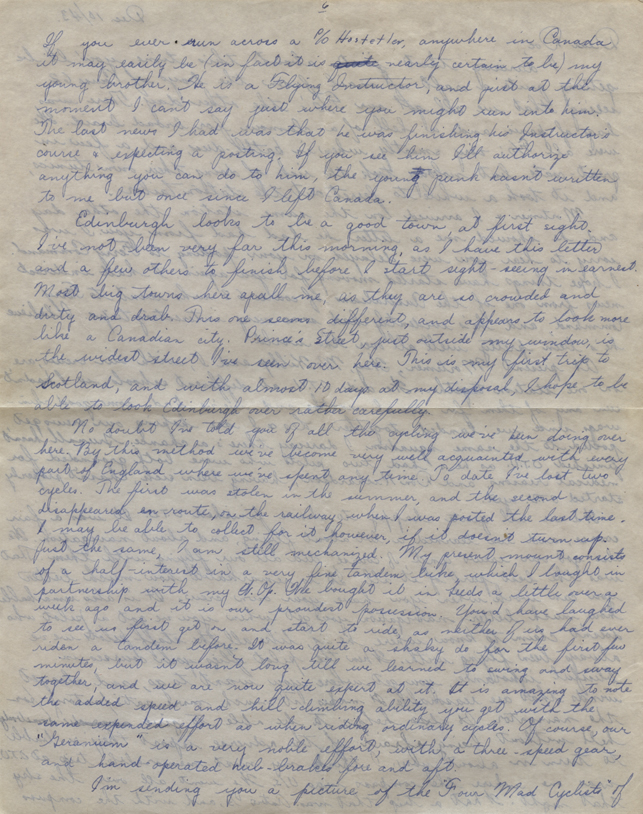 6
If you ever run across a P/O Hostetler, anywhere in Canada
it may easily be (in fact it is quite nearly certain to be) my
young brother. He is a Flying Instructor, and just at the
moment I can't say just where you might run into him.
The last news I had was that he was finishing his Instructor's
course & expecting a posting. If you see him I'll authorize
anything you can do to him, the young punk hasn't written
to me but once since I left Canada.
Edinburgh looks to be a good town, at first sight.
I've not been very far this morning, as I have this letter
and a few others to finish before I start sight-seeing in earnest.
Most big towns here apall me, as they are so crowded and
dirty and drab. This one seems different, and appears to look more
like a Canadian city. Prince's Street, just outside my window, is
the widest street I've seen over here. This is my first trip to
Scotland, and with almost 10 days at my disposal I hope to be
able to look Edinburgh over rather carefully.
No doubt I've told you of all the cycling we've been doing over
here. By this method we've become very well acquainted with every
part of England where we've spent any time. To date I've lost two
cycles. The first was stolen in the summer, and the second
disappeared en route, on the railway, when I was posted the last time.
I may be able to collect for it, however, if it doesn't turn up.
Just the same, I am still mechanized. My present mount consists
of a half-interest in a very fine tandem bike, which I bought in
partnership with my W.Op. We bought it in Leeds a little over a
week ago and it is our proudest possession. You'd have laughed
to see us first get on and start to ride, as neither of us had ever
riden a tandem before. It was quite a shaky do for the first few
minutes, but it wasn't long till we learned to swing and sway
together, and we are now quite expert at it. It is amazing to note
the added speed and hill-climbing ability you get with the
same expended effort as when riding ordinary cycles. Of course our
"Geranium" is a very noble effort, with a three-speed gear,
and hand-operated hub-brakes fore and aft.
I'm sending you a picture of the "Four Mad Cyclists" of